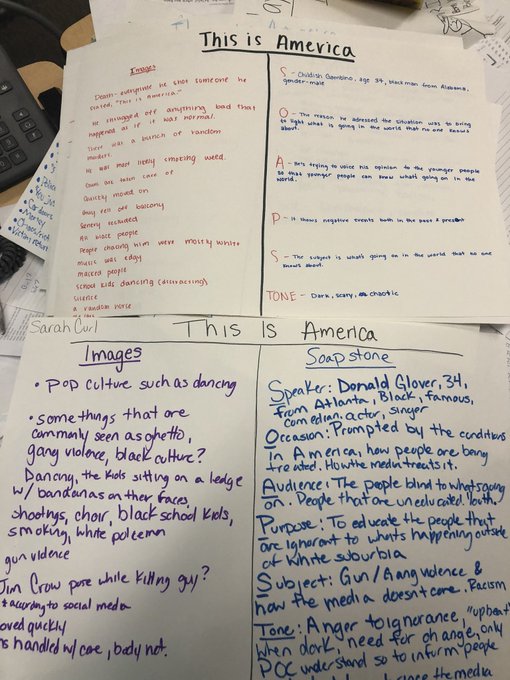 This is America
Images
Death - everytime he shot someone he
stated, "This is america."
He shrugged off anything bad that
happened as if it was normal.
There was a bunch of random
murders.
He was most likely smoking weed.
Guns are taken care of
Quickly moved on
Guy fell off balcony
Scenery secluded
All black people
People chasing him were mostly white
music was edgy
masked people
school kids dancing (distracting)
silence
a random horse
S - Childish Gambino, age 34, black man from Alabama,
gender-male
O - The reason he addressed the situation was to bring
to light what is going in the world that no one knows
about.
A - He's trying to voice his opinion to the younger people
so that younger people can know what's going on in the
world.
P - It shows negative events both in the past & present
S - The subject is what's going on in the world that no one
knows about.
TONE - Dark, scary, chaotic
Sarah Curl
This Is America
Images
• Pop culture such as dancing
• some things that are
commonly seen as ghetto,
gang violence, black culture?
Dancing, the kids sitting on a ledge
w/ bandanas on their faces
shootings, choir, black school kids,
smoking, white policemen
gun violence
Jim Crow pose while killing guy?
*according to social media
oved quickly
ns handled w/ care, body not.
Soapstone
Speaker: Donald Glover, 34,
from Atlanta, Black, famous,
comedian, actor, singer
Occasion: Prompted by the conditions
in America, how people are being
treated. How the media treats it.
Audience: The people blind to whats going
on. People that are uneducated. Youth.
Purpose: To educate the people that
are ignorant to whats happening outside
of white suburbia
Subject: Gun/Gang violence &
how the media doesnt care. Racism
Tone: Anger to ignorance, "upbeat"
when dark, need for change, only
POC understand so to inform people
since the media